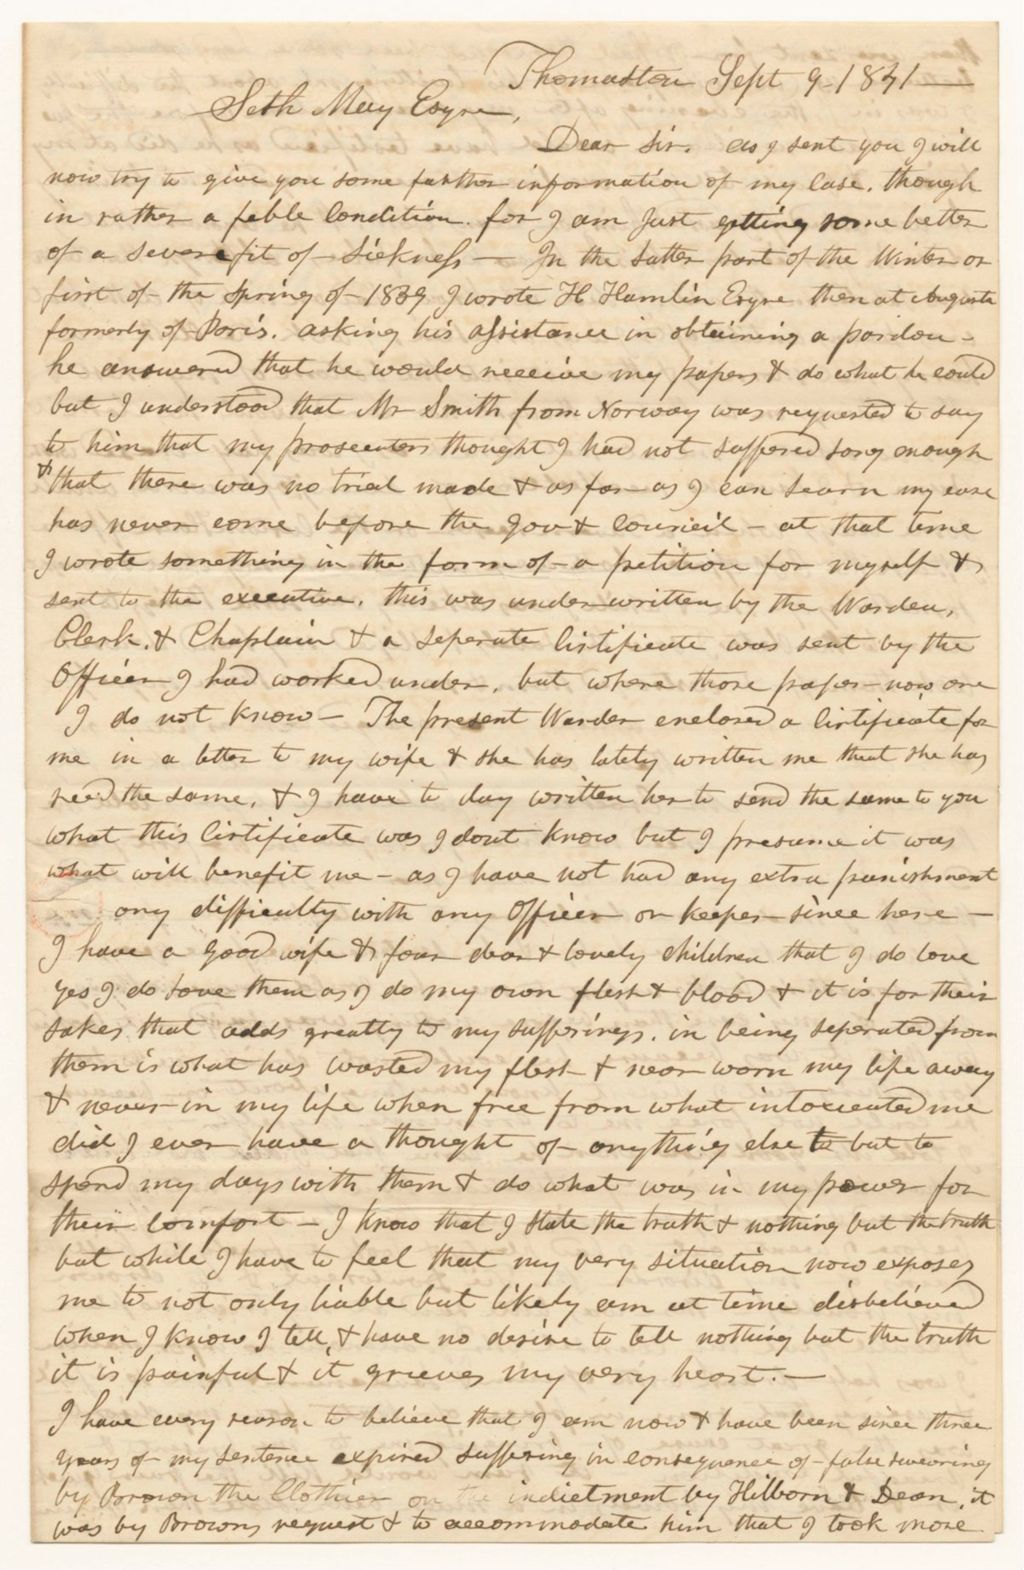 Thomaston Sept 9 1841
Seth May Esqre,
Dear Sir. as I sent you I will
now try to give you some farther information of my Case. though
in rather a feble Condition. for I am Just getting some better
of a severe fit of Sickness — In the latter part of the Winter or
first of the Spring of 1839 I wrote H Hamlin Esqre then at Augusta
formerly of Paris. asking his assistance in obtaining a pardon -
he answered that he would receive my papers & do what he could
but I understood that Mr Smith from Norway was requested to say
to him that my prosecuters thought I had not suffered long enough
& that there was no trial made & as far as I can learn my case
has never come before the Gov & Council - at that time
I wrote something in the form of a petition for myself &
sent to the executive. this was under written by the Warden,
Clerk. & Chaplain & a seperate Certificate was sent by the
Officer I had worked under. but where those paper now are
I do not know - The present Warden enclosed a Certificate for
me in a letter to my wife & she has lately written me that she has
recd the same. & I have to day written her to send the same to you
what this Certificate was I dont know but I presume it was
what will benefit me - as I have not had any extra punishment
any difficulty with any Officer or keeper since here -
I have a good wife & four dear & lovely children that I do love
yes I do love them as I do my own flesh & blood & it is for their
sakes that adds greatly to my sufferings. in being seperated from
them is what has wasted my flesh & near worn my life away
& never in my life when free from what intoxicated me
did I ever have a thought of anything else but to
spend my days with them & do what was in my power for
their comfort - I know that I state the truth & nothing but the truth
but while I have to feel that my very situation now exposes
me to not only liable but likely am at time disbelieved
when I know I tell, & have no desire to tell nothing but the truth
it is painful & it grieves my very heart. -
I have every reason to believe that I am now & have been since three
years of my sentence expired suffering in consequence of false swearing
by Brown the Clothier on the indictment by Hilborn & Dean, it
was by Browns request & to accommodate him that I took more